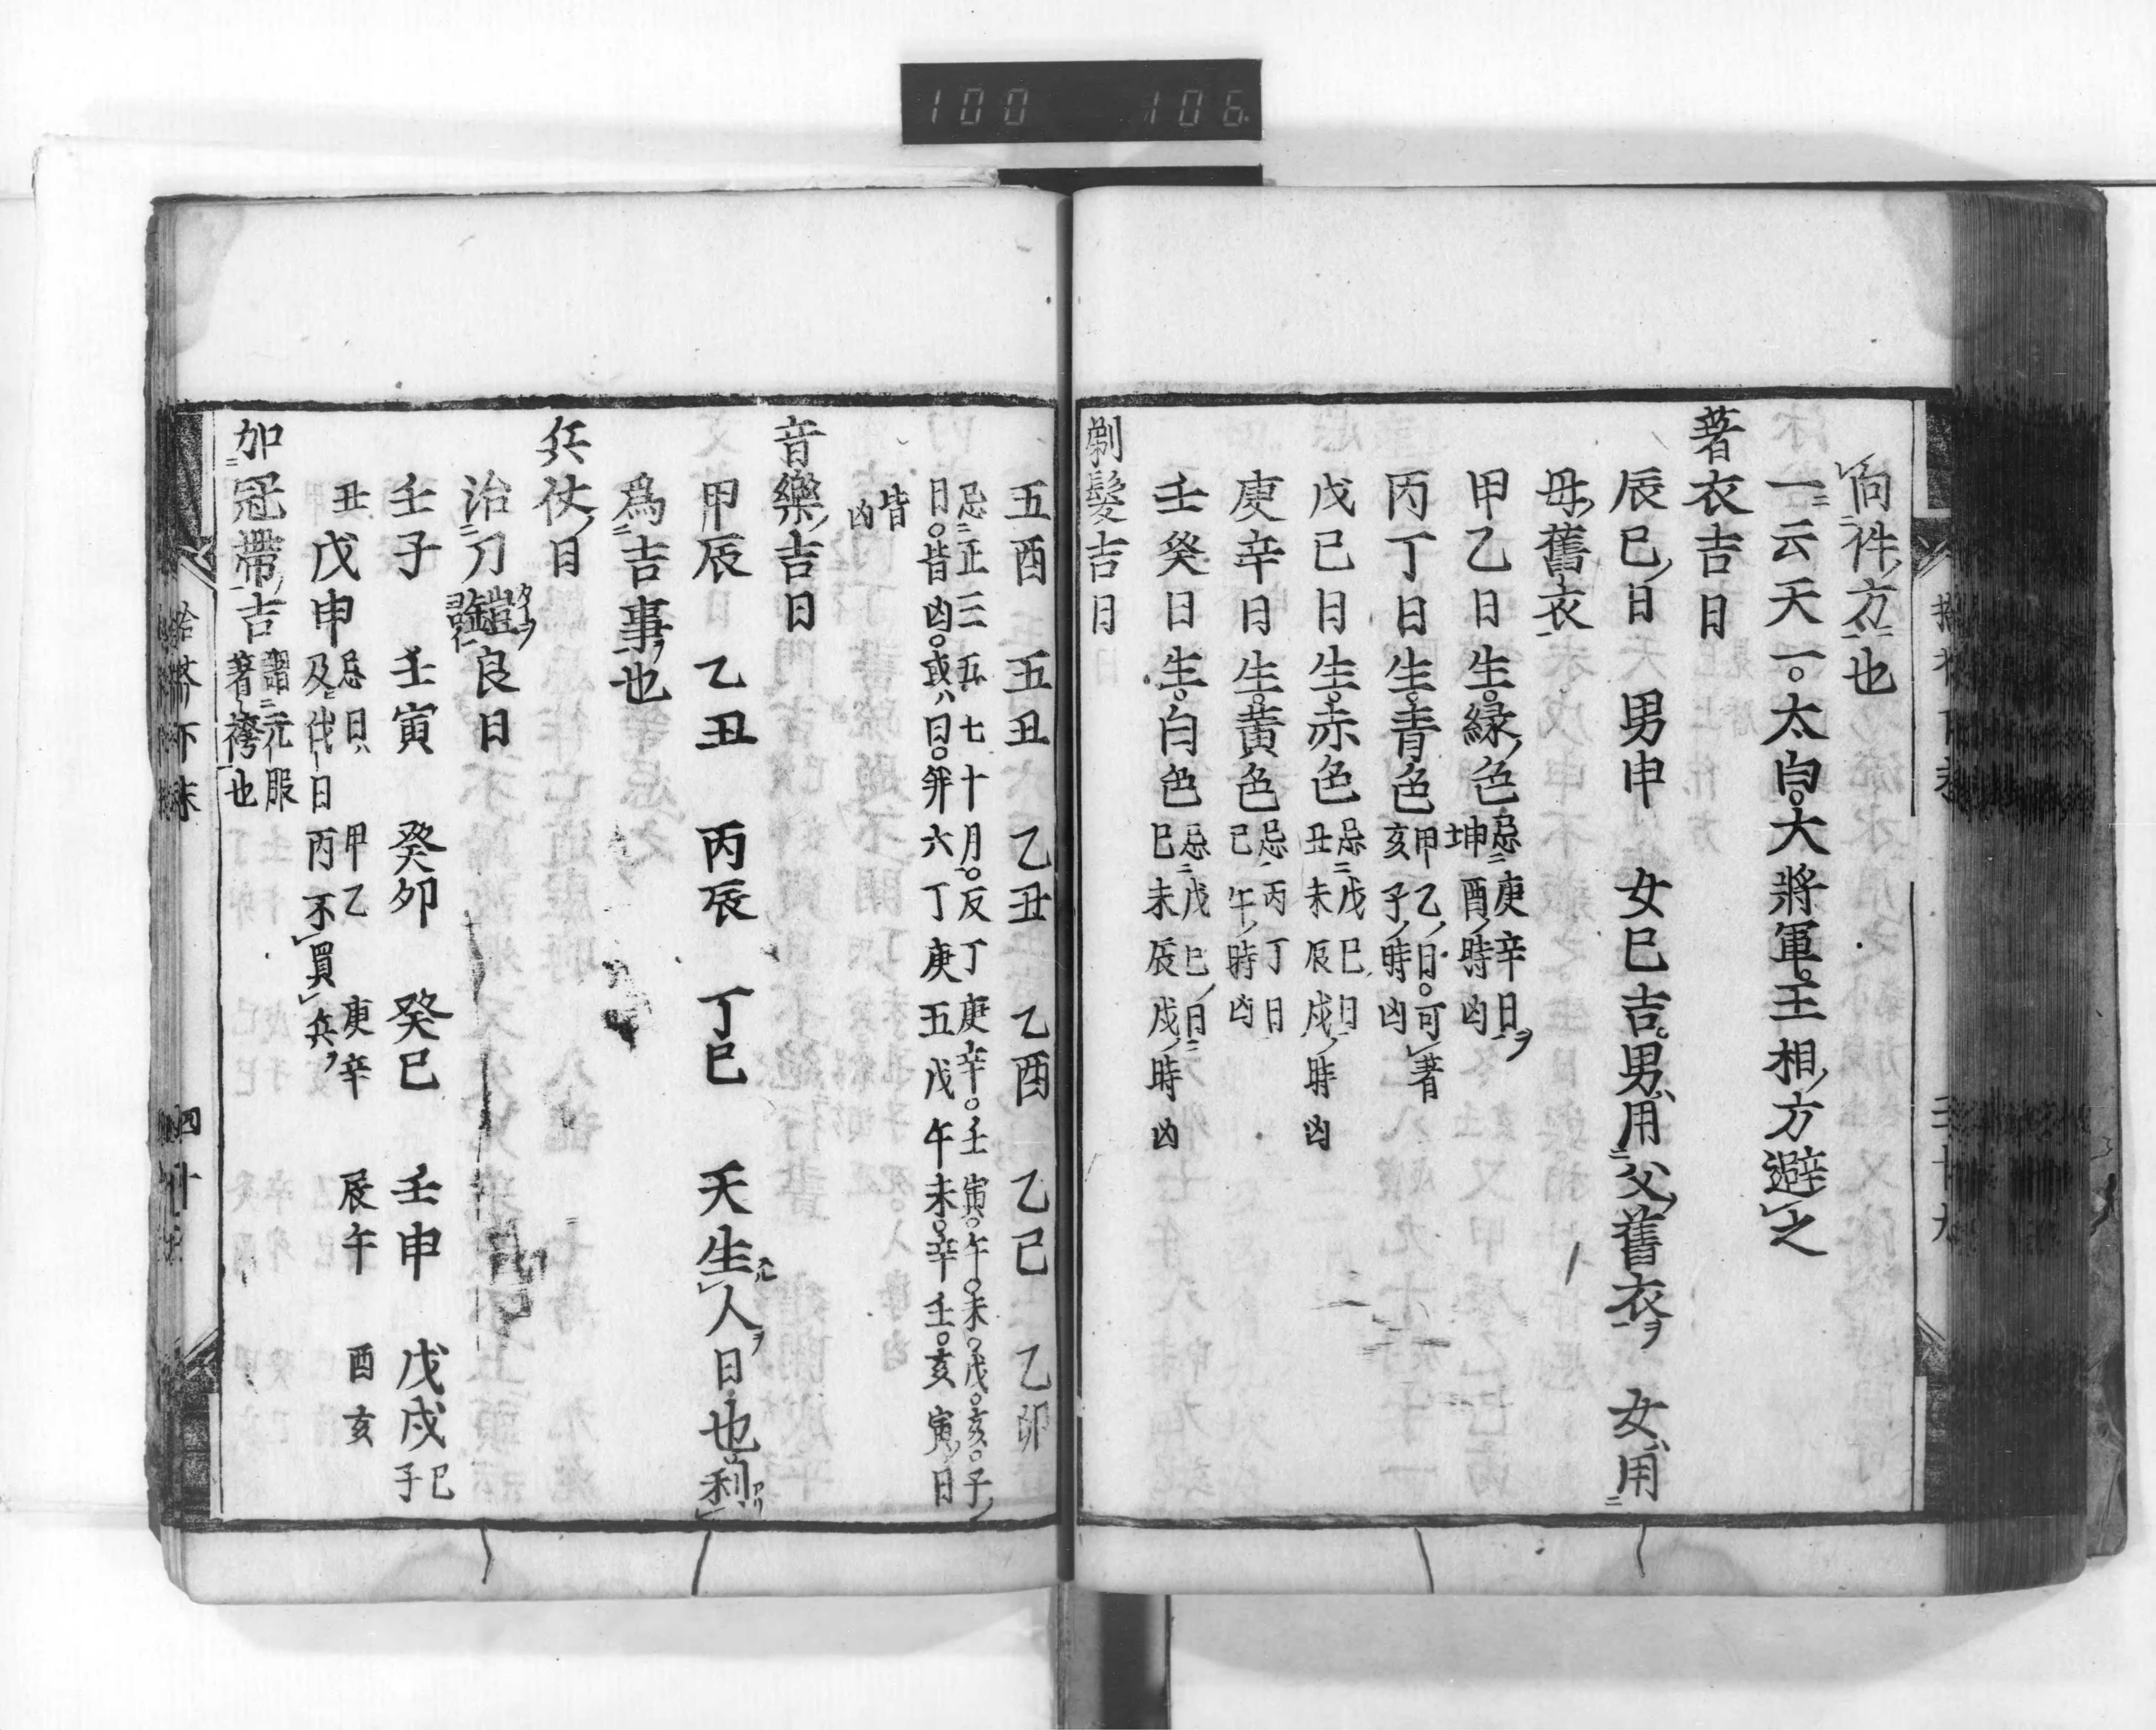 100 106
向件方也
一云天一。太白。大將軍。王相方避之
著衣吉日
辰巳日 男申 女巳吉。男用父舊衣 女用
母舊衣
甲乙日生。緑色 忌庚辛日
坤酉時凶
丙丁日生。青色 甲乙日。可著
亥子時凶
戊己日生。赤色 忌戊巳日
丑未辰戌時凶
庚辛日生。黄色 忌丙丁日
巳午時凶
壬癸日生。白色 忌戊巳日
巳未辰戌時凶
剃髮吉日
五酉 五丑 乙丑 乙酉 乙巳 乙卯
忌正三五七十月。反丁庚辛。壬寅。午。未。戊。亥。子
日。皆凶。或日。并六丁庚五戊午未。辛壬。亥寅日
皆
凶
音樂吉日
甲辰 乙丑 丙辰 丁巳 天生人日也利
爲吉事也
兵仗日
治刀鎧良日
壬子 壬寅 癸卯 癸巳 壬申 戊戌 巳
子
丑 戊申 忌日 甲乙 庚辛 辰午 酉亥
及伐日 丙不買兵
加冠帶吉 謂元服
著袴也
拾芥下末 四十